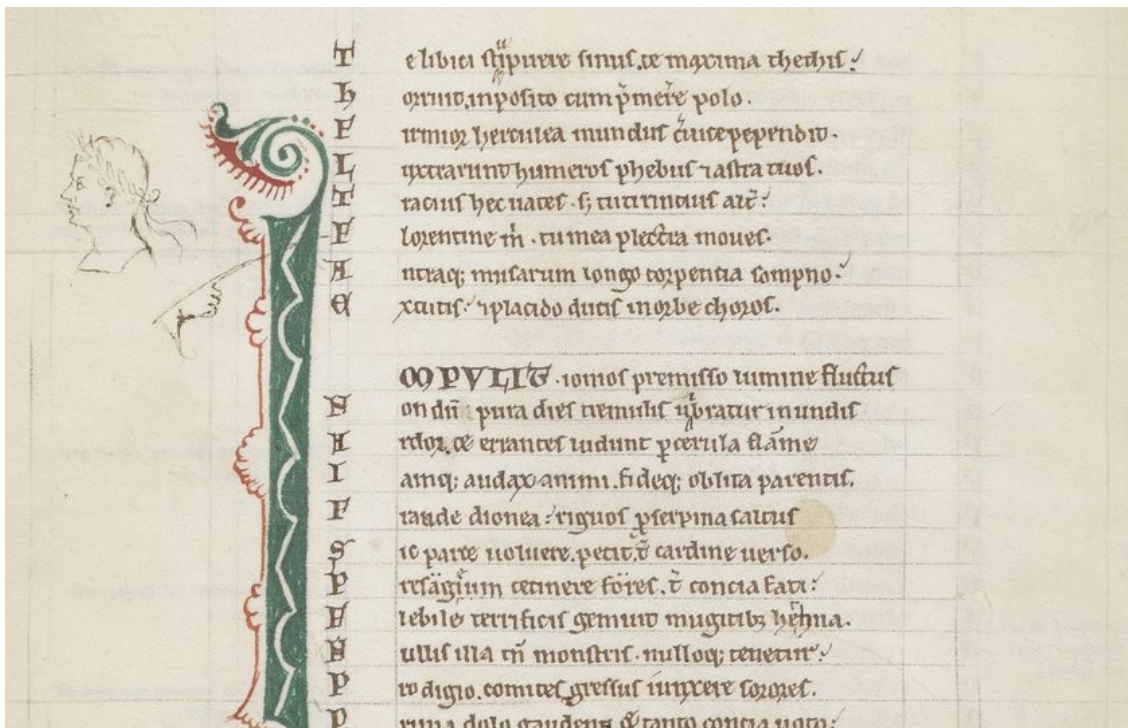 T e libici stupuere sinus. te maxima thethis.
h orruit. inposito cum p̄mere polo.
F irmior herculea mundus c̄uice pependit.
L uxtrarunt humeros phebus ⁊ astra tuos.
T racius hec uates. s; tu tirincius alt̄.
F lorentine m̄. tu mea plectra moues.
A ntraq; musarum longo torpentia sompno.
E xcutis. ⁊ placido ducis in orbe choros.
I MPVLIT. ionios premisso lumine fluctus
N on dū pura dies tremulis uibratur in undis
A rdor. ⁊ errantes ludunt ꝑ cerula flāme
I amq; audax animi. fideq; oblita parentis.
F raude dionea. riguos ꝓserpina saltus
S ic parce uoluere. petit. t̄ cardine uerso.
P resagium cecinere fores. t̄ concia fati.
F lebile terrificis gemuit mugitibꝫ hethna.
N ullis illa tn̄ monstris. nulloq; tenetur.
P ro digio. comites gressus iunxere sorores.
P rima dolo gaudens & tanto concita uoto.